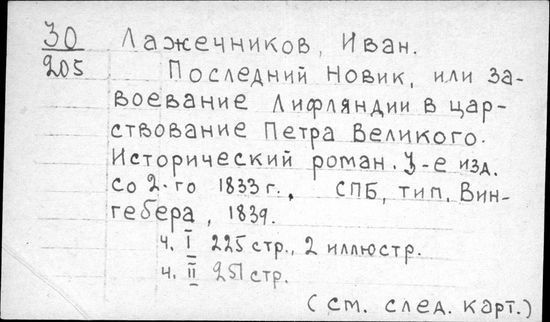 30 Лажечников, Иван.
205 Последний Новик, или за-
воевание Лифляндии в цар-
ствование Петра Великого.
Исторический роман. 3-е изд.
со 2-го 1833 г., СПБ, тип. Вин-
гебера, 1839.
ч. I 225 стр., 2 иллюстр.
ч. II 251 стр.
(см. след. карт.)